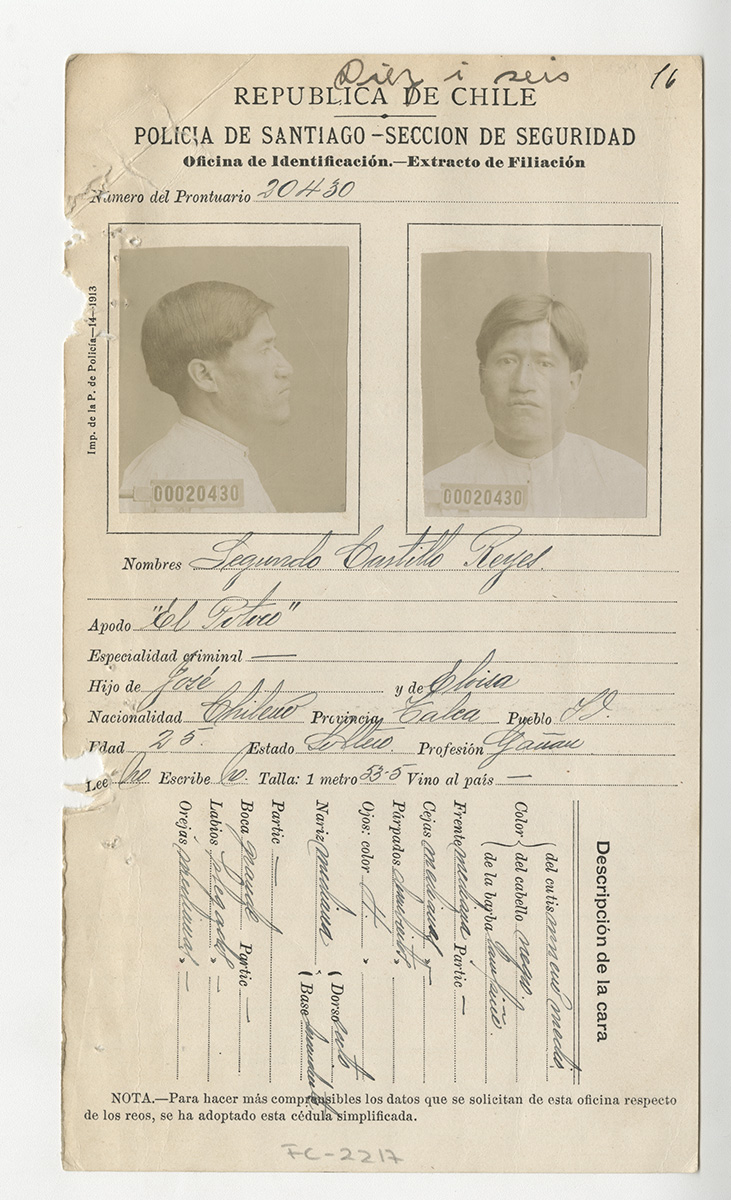 Diez i seis
16
REPUBLICA DE CHILE
POLICIA DE SANTIAGO-SECCION DE SEGURIDAD
Oficina de Identificación.—Extracto de Filiación
Número del Prontuario 20430
Imp. de la P. de Policía—14—1913
00020430
00020430
Nombres Segundo Castillo Reyes
Apodo "El Potoco"
Especialidad criminal —
Hijo de José y de Eloisa
Nacionalidad Chileno Provincia Talca Pueblo Id.
Edad 25. Estado Soltero. Profesión Gañan
Lee No Escribe No. Talla: 1 metro 53-5 Vino al país —
Descripción de la cara
Color { del cutis moreno medio
del cabello negro
de la barba lampiño.
Frente mediana Partic —
Cejas medianas " —
Párpados "
Ojos: color "
Nariz mediana { Dorso recto
Base
Partic —
Boca grande Partic —
Labios " —
Orejas medianas " —
NOTA.—Para hacer más comprensibles los datos que se solicitan de esta oficina respecto
de los reos, se ha adoptado esta cédula simplificada.
FC-2217